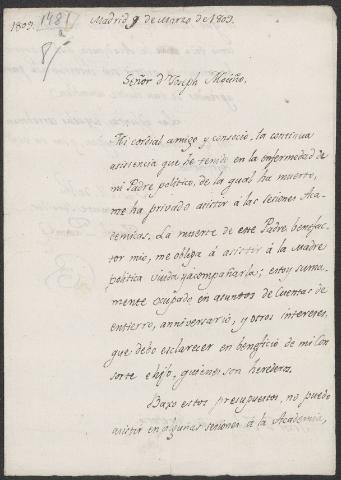 1809.
1481
8/
Madrid 9 de Marzo de 1809.
Señor Dn Joseph Moziño.
Mi cordial amigo y consocio, la continua
asistencia que he tenido en la enfermedad de
mi Padre político, de la qual ha muerto,
me ha privado asistir á las sesiones Aca-
demicas. La muerte de este Padre, benefac-
tor mio, me obliga á asistir á la Madre
política viuda, y acompañarla; estoy suma-
mente ocupado en asuntos de Cuentas de
entierro, anniversario, y otros intereses,
que debo esclarecer en beneficio de mi Con
sorte e hijo, quiénes son herederos.
Baxo estos presupuestos, no puedo
asistir en algunas sesiones á la Academia,